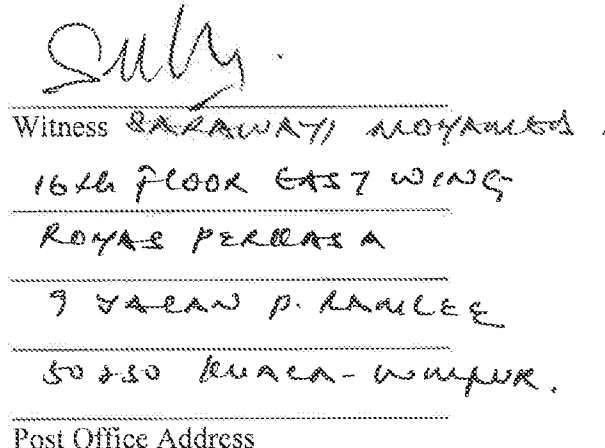 Witness
16th FLOOR EAST WING
ROYAL PERDANA
9 JALAN P. RAMLEE
50250 KUALA-LUMPUR.
Post Office Address